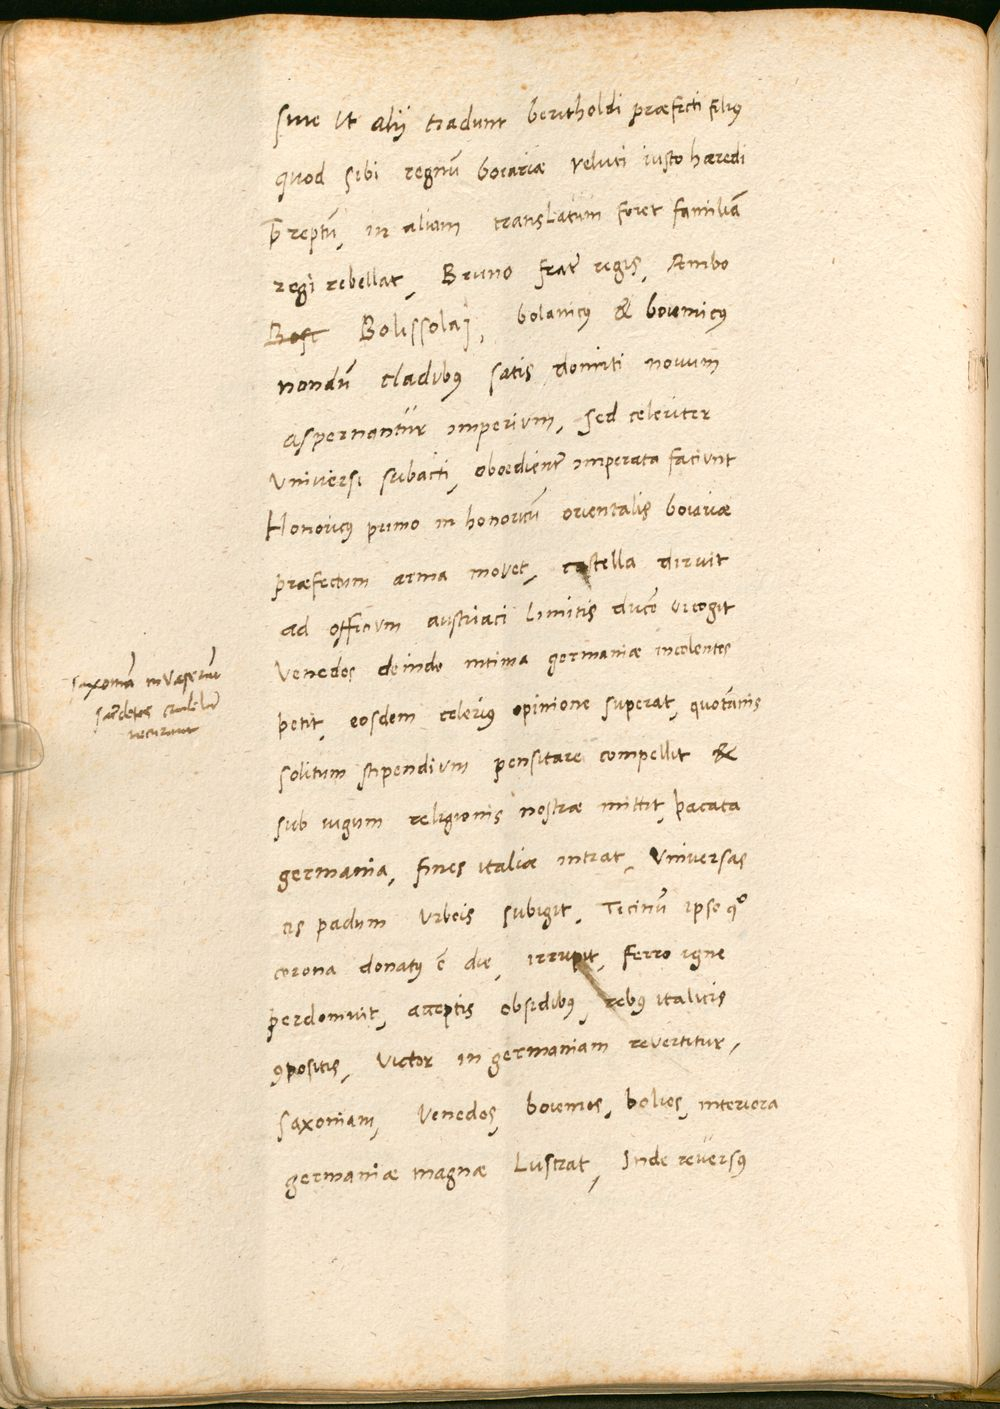 siue ut alij tradunt beritholdi præfecti filiꝰ
quod sibi regnū boiariæ veluti iusto hæredi
p̄reptū, in aliam translatum foret familiā
regi rebellat, Bruno frat̄ regis, Ambo
Bosi Bolissolai, bolanicꝰ & boiemicꝰ
nondū cladibꝰ satis domiti nouum
aspernantur imperium, sed celeriter
Vniuersi subacti, oboedient̄ imperata faciunt
Honoricꝰ primo in honoricū orientalis boiariæ
præfectum arma mouet, castella diruit
ad officium austriaci limitis ducē
Venedos deinde intima germaniæ incolentes
petit, eosdem celeriꝰ opinione superat, quotānis
solitum stipendium pensitare compellit &
sub iugum religionis nostræ mittit, pacata
germania, fines italiæ intrat, Vniuersas
cis padum Vrbeis subigit, Ticinū ipso qº
corona donatꝰ ē die, irrupit, ferro igne
perdomuit, acceptis obsidibꝰ, rebꝰ italicis
ꝯpositis, Victor in germaniam reuertitur,
Saxoniam, Venedos, boiemos, bolios, interiora
germaniæ magnæ Lustrat, Inde reuersꝰ
saxoniā